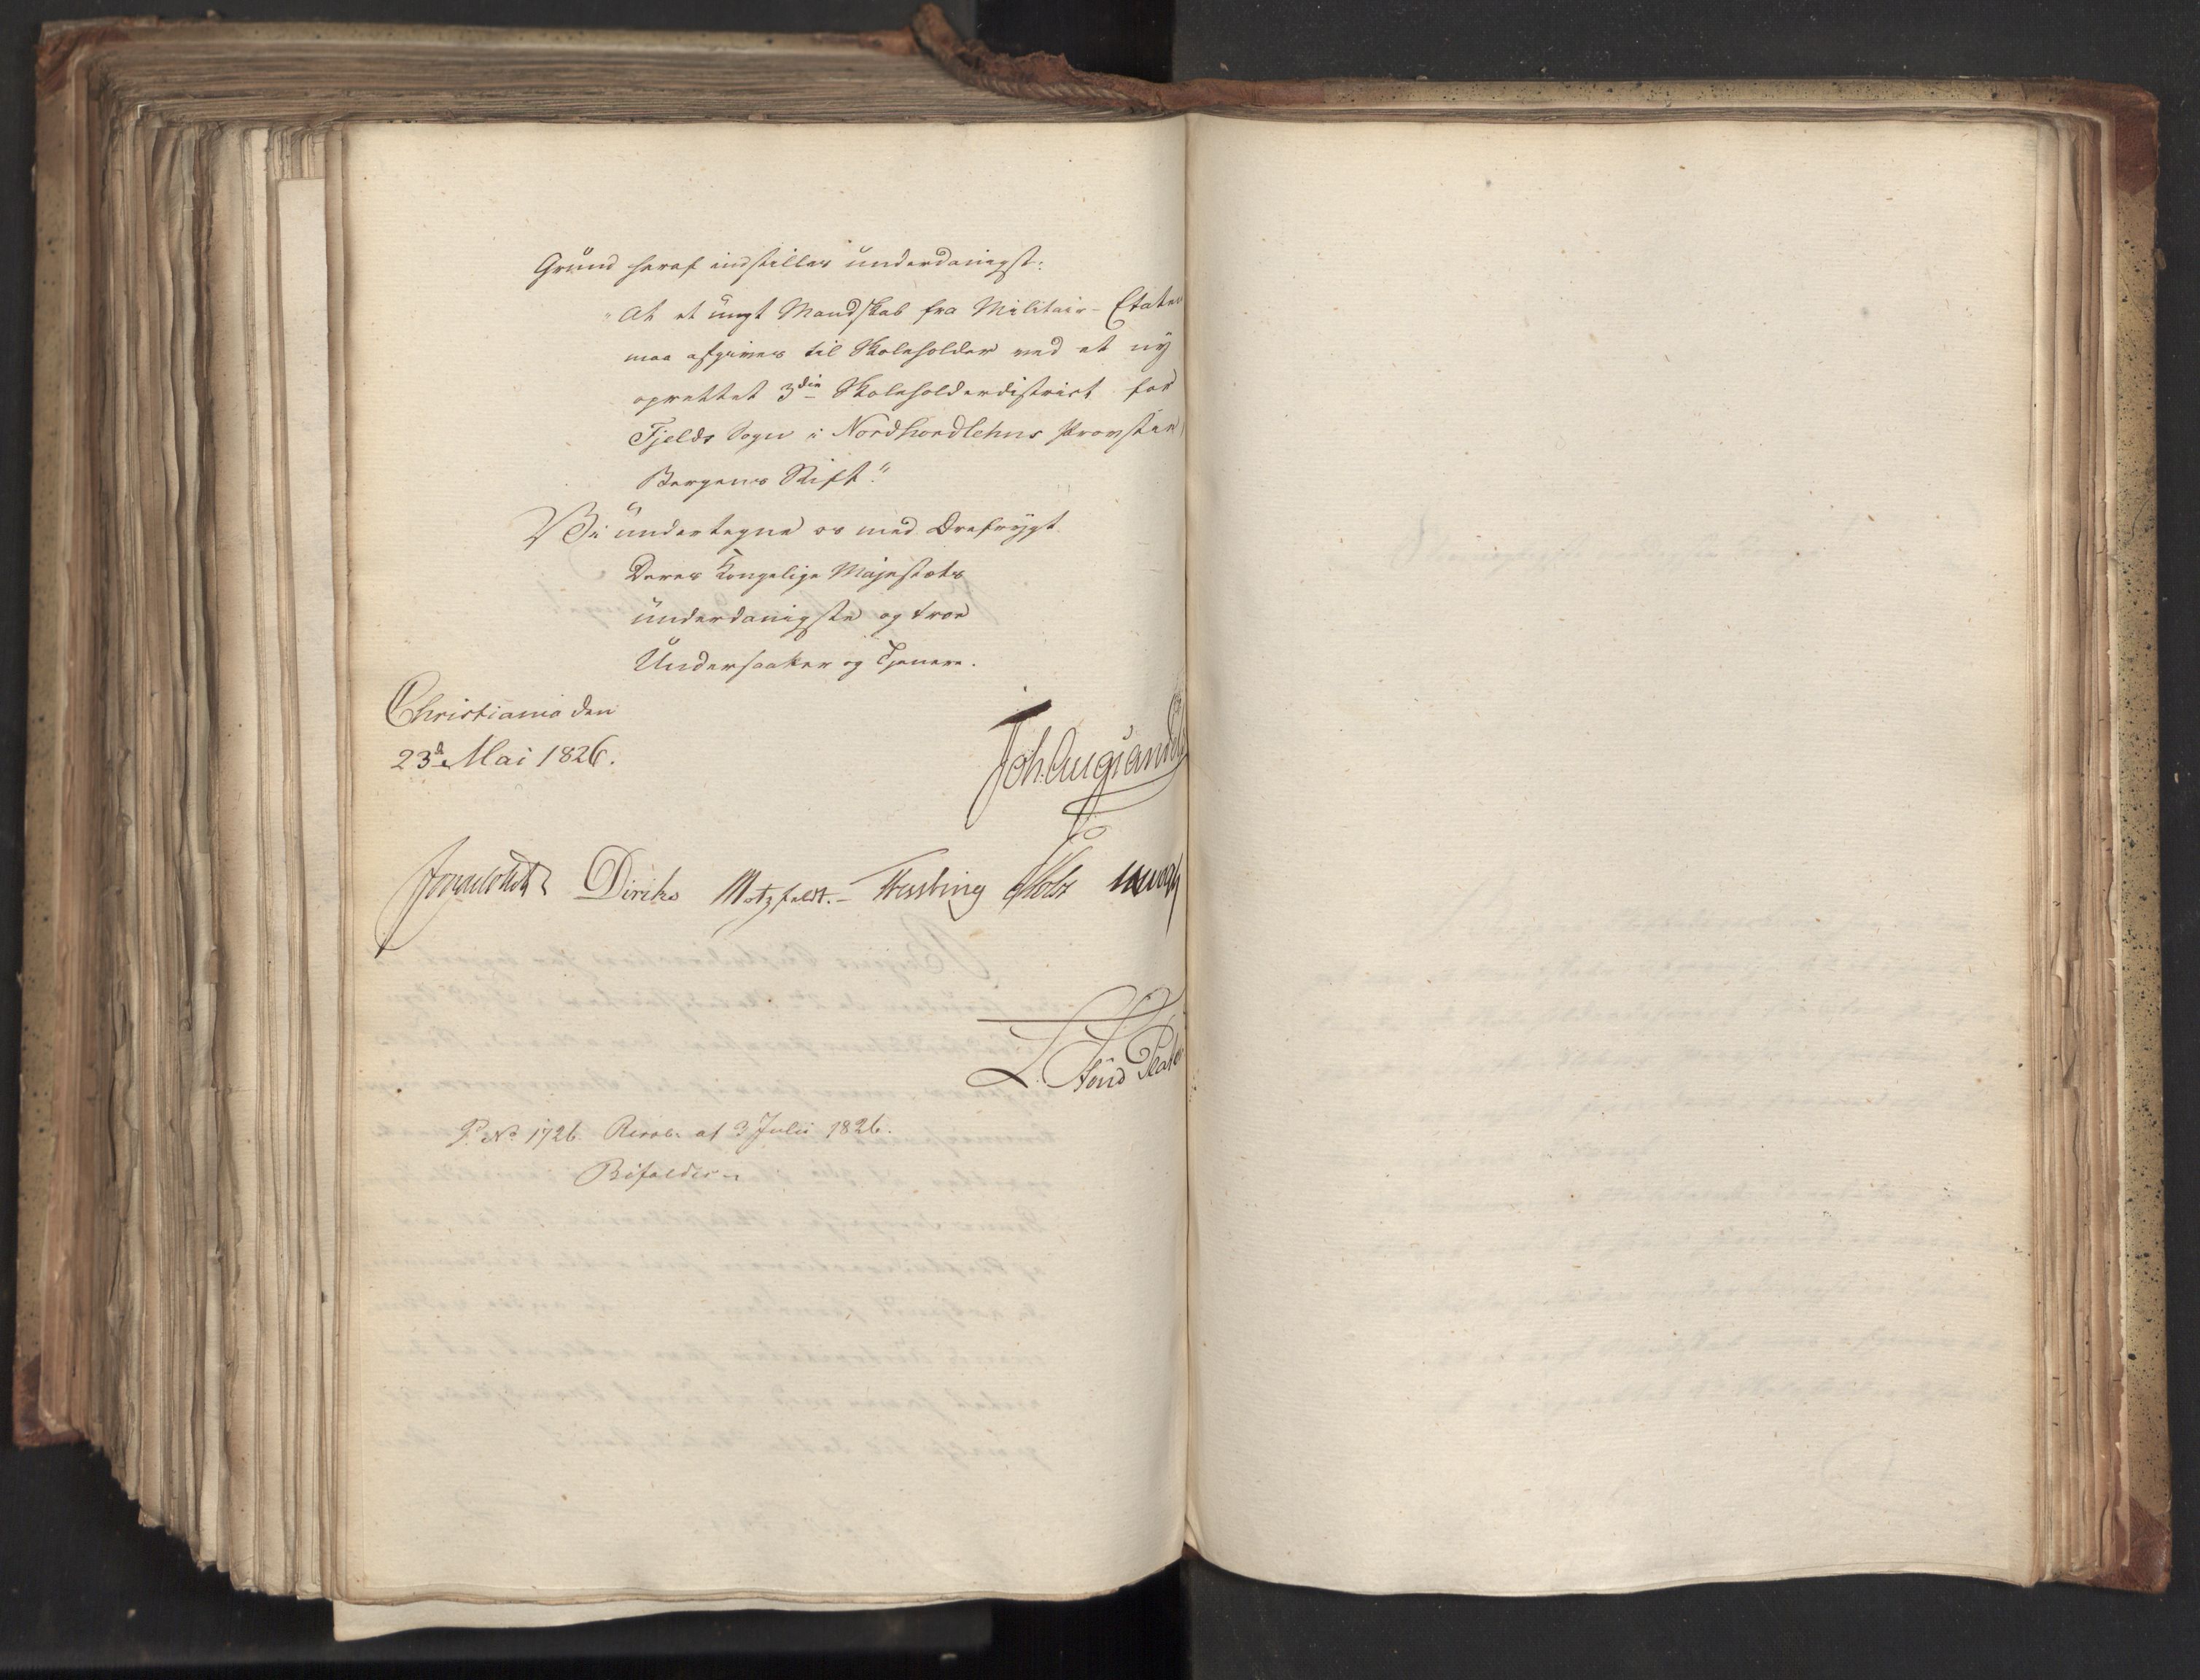 Grund heraf indstilles underdanigst:
"At et ungt Mandskab fra Militair-Etaten
maa afgives til Skoleholder ved et ny
oprettet 3die Skoleholderdistrict for
Fjelds Sogn i Nordhordlehns Provstie
Bergens Stift."
Vi undertegne os med Ærefrygt
Deres Kongelige Majestæts
underdanigste og troe
Undersaatter og Tjenere.
Christiania den
23de Mai 1826.
Joh. Aug. Sandels
Sommerhielm Diriks Motzfeldt.- Fasting Holst
L. Stoud Platou
P. No. 1726. Resol. af 3 Julii 1826.
Bifaldes